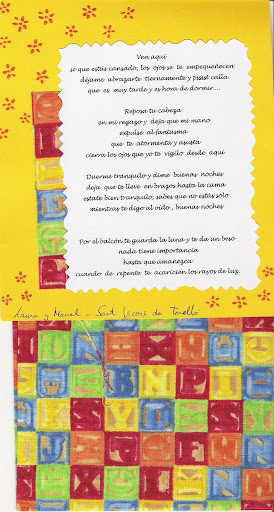 Ven aquí
se que estás cansado, los ojos se te empequeñecen
déjame abrazarte tiernamente y pssst calla
que es muy tarde y es hora de dormir...
Reposa tu cabeza
en mi regazo y deja que mi mano
expulse al fantasma
que te atormenta y asusta
cierra los ojos que yo te vigilo desde aquí
Duerme tranquilo y dime buenas noches
deja que te lleve en brazos hasta la cama
estate bien tranquilo, sabes que no estás solo
mientras te digo al oído, buenas noches
Por el balcón te guarda la luna y te da un beso
nada tiene importancia
hasta que amanezca
cuando de repente te acaricien los rayos de luz.
Laura y Manel - Sant de